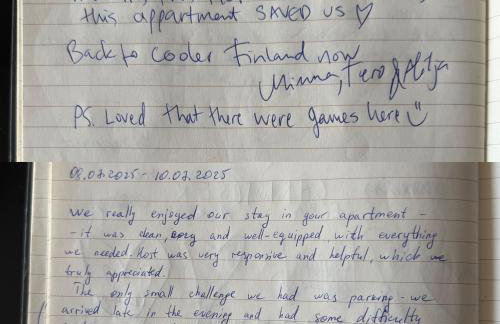 this appartment SAVED US ♡
Back to cooler Finland now
Minna, Eero &
PS. Loved that there were games here
08.07.2025 - 10.07.2025
We really enjoyed our stay in your apartment -
- it was clean, cozy and well-equipped with everything
we needed. Host was very responsive and helpful, which we
truly appreciated.
The only small challenge we had was parking - we
arrived late in the evening and had some difficulty